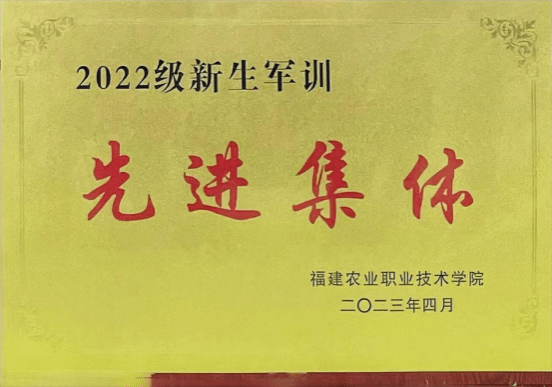 2022级新生军训
先进集体
福建农业职业技术学院
二〇二三年四月